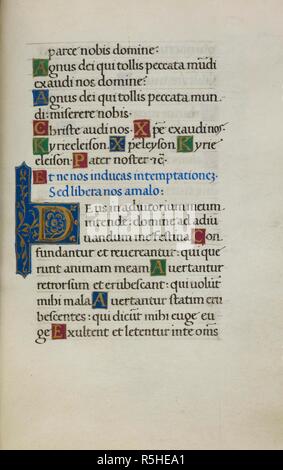 parce nobis domine:
Agnus dei qui tollis peccata mūdi
exaudi nos domine:
Agnus dei qui tollis peccata mun
di: miserere nobis.
Christe audi nos. Xp̄e exaudi nos.
Kyrieeleison. Xpeleyson. Kyrie
eleison. Pater noster ⁊c̄.
Et ne nos inducas in temptationeʒ.
Sed libera nos a malo:
Deus in adiutorium meum
intende: domine ad adiu
uandum me festina. Con
fundantur et reuereantur: qui que
runt animam meam. Auertantur
retrorsum et erubescant: qui uolūt
mihi mala. Auertantur statim eru
bescentes: qui dicūt mihi euge eu
ge. Exultent et letentur in te om̄s
alamy
www.alamy.com - R5HEA1